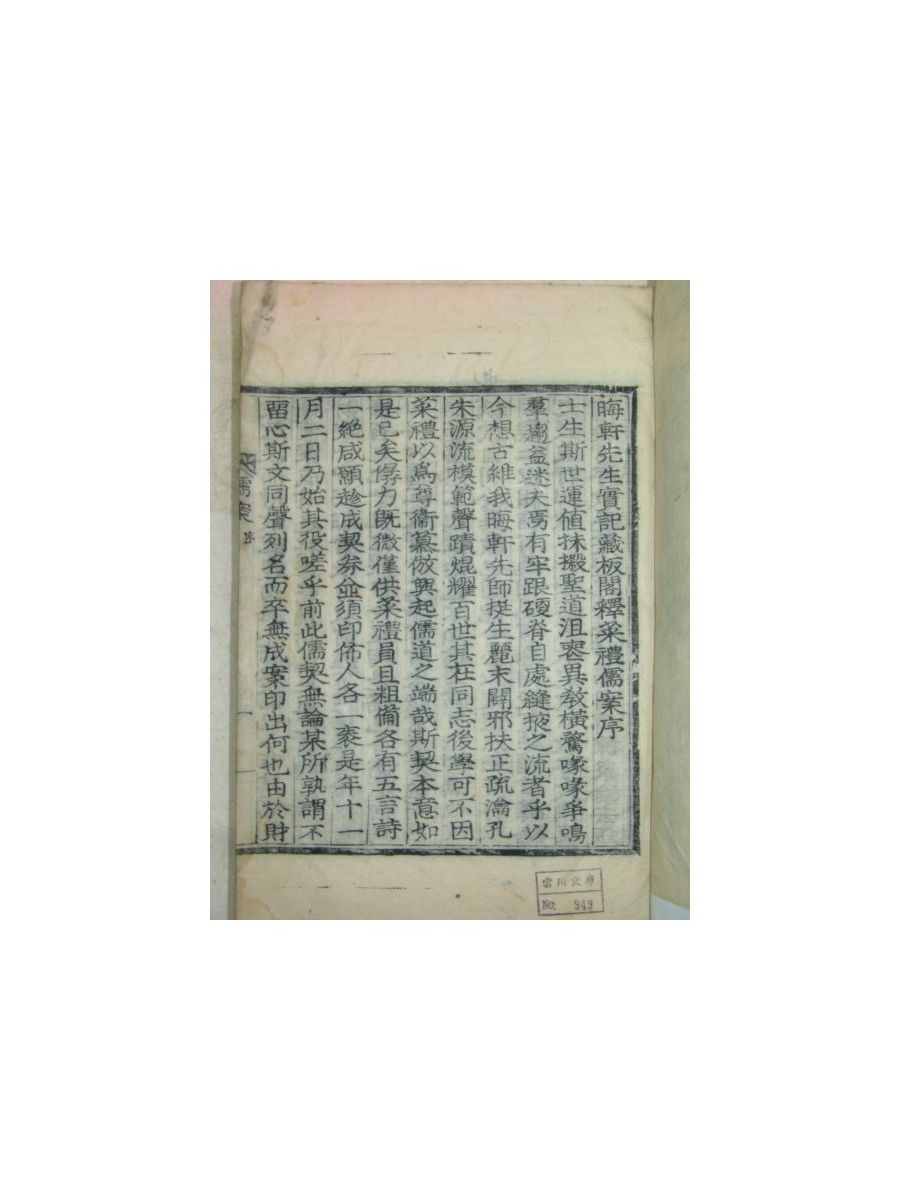 晦軒先生實記藏板閣釋菜禮儒案序
士生斯世運値抹摋聖道沮喪異敎橫騖喙喙爭鳴
羣趨益迷夫焉有牢跟硬脊自處縫掖之流者乎以
今想古維我晦軒先師挺生麗末闢邪扶正疏瀹孔
朱源流模範聲蹟焜耀百世其在同志後學可不因
菜禮以爲尊衞慕倣興起儒道之端哉斯契本意如
是已矣僝力旣微僅供菜禮員且粗備各有五言詩
一絶咸願趁成契券並須印佈人各一袠是年十一
月二日乃始其役嗟乎前此儒契無論某所孰謂不
留心斯文同聲列名而卒無成案印出何也由於財
儒案 序
一
文庫
No. 949